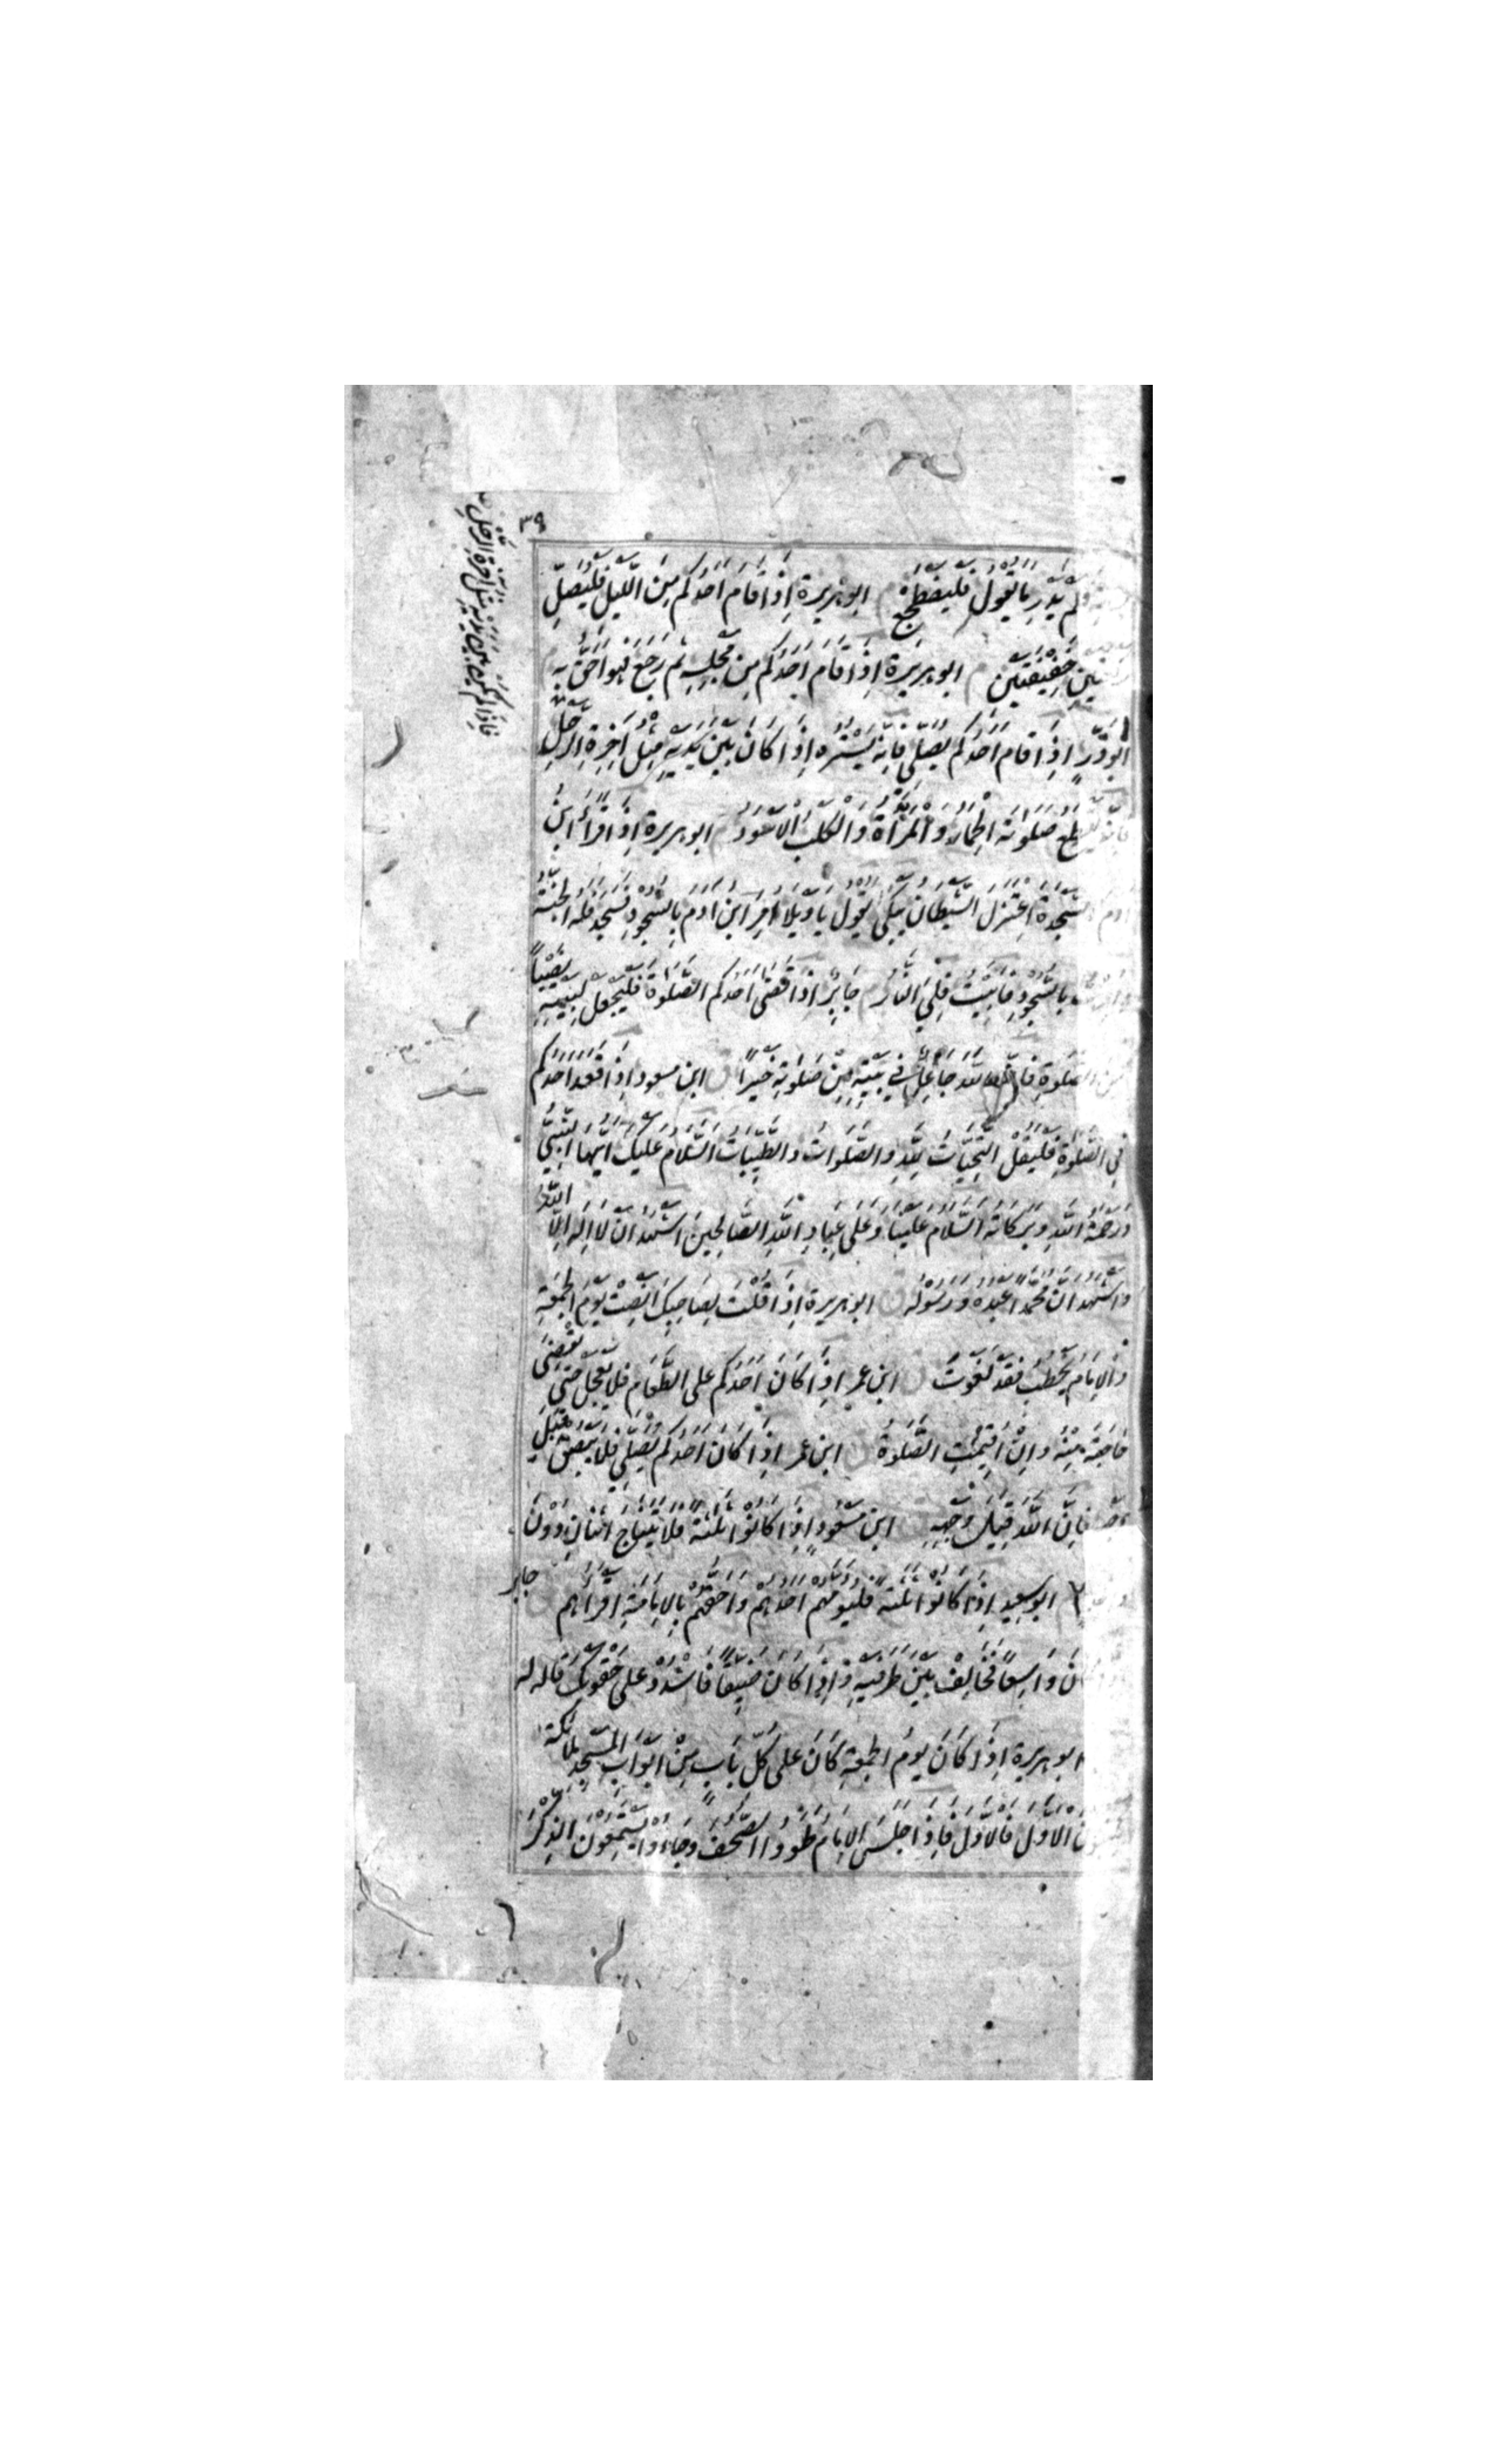 ٣٩
فلم يَدْرِ مَا يَقُولُ فَلْيَضْطَجِعْ م ابو هريرة اِذَا قَامَ اَحَدُكُم مِنَ اللَّيْلِ فَلْيُصَلِّ
خَفِيْفَتَيْنِ م ابو هريرة اِذَا قَامَ اَحَدُكُم مِن مَجْلِسِهِ ثم رَجَعَ فهُوَ اَحَقُّ بِهِ
ابُو ذَرٍّ اِذَا قَامَ اَحَدُكُم يُصَلِّي فَاِنَّهُ يَسْتُرُه اِذَا كَانَ بَيْنَ يَدَيْهِ مِثْلُ آخِرَةِ الرَّحْلِ
يَقطع صَلوٰتَهُ الْحِمَارُ وَالْمَرْأَةُ وَالْكَلْبُ الْاَسْوَدُ م ابو هريرة اِذَا قَرَأَ ابْنُ
ادم السَّجْدَةَ اِعْتَزَلَ الشَّيْطَانُ يَبْكِي يَقُولُ يَا وَيْلَا اُمِرَ ابنُ ادَمَ بِالسُّجُودِ فَسَجَدَ فَلَه الجَنَّةُ
بِالسُّجُودِ فَابَيْتُ فَلِيَ النَّارُ م جَابِرٌ اِذَا قَضَى اَحَدُكُم الصَّلوٰةَ فَلْيَجْعَلْ لِبَيْتِهِ نَصِيْباً
مِنَ الصَّلوٰةِ فَاِنَّ اللّٰهَ جَاعِلٌ فِي بَيْتِهِ مِنْ صَلوٰتِهِ خَيْرًا ق ابن مسعود اِذَا قَعَدَ اَحَدُكُم
فِي الصَّلوٰةِ فَلْيَقُلْ التَّحِيَّاتُ لِلّٰهِ وَالصَّلَوَاتُ وَالطَّيِّبَاتُ السَّلَامُ عَلَيْكَ اَيُّهَا النَّبِيُّ
وَرَحْمَةُ اللّٰهِ وَبَرَكَاتُه السَّلَامُ عَلَيْنَا وَعَلَى عِبَادِ اللّٰهِ الصَّالِحِيْنَ اَشْهَدُ اَنْ لَا اِلٰهَ اِلَّا اللّٰهُ
وَاَشْهَدُ اَنَّ مُحَمَّدًا عَبْدُهُ وَرَسُوْلُه ق ابو هريرة اِذَا قُلْتَ لِصَاحِبِكَ اَنْصِتْ يَوْمَ الجُمُعَةِ
وَالاِمَامُ يَخْطُبُ فَقَدْ لَغَوْتَ ق ابن عمر اِذَا كَانَ اَحَدُكُم عَلَى الطَّعَامِ فَلَا يَعْجَلْ حَتّٰى يَقْضِيَ
حَاجَتَهُ مِنْهُ وَاِنْ اُقِيْمَتِ الصَّلوٰةُ ق ابن عمر اِذَا كَانَ اَحَدُكُم يُصَلِّي فَلَا يَبْصُقْ قِبَلَ
فَاِنَّ اللّٰهَ قِبَلَ وَجْهِهِ ق ابن مَسْعُودٍ اِذَا كَانُوْا ثَلٰثَةً فَلَا يَتَنَاجَ اثْنَانِ دُوْنَ
ابو سعيد اِذَا كَانُوْا ثَلٰثَةً فَلْيَؤُمَّهُمْ اَحَدُهُمْ وَاَحَقُّهُمْ بِالاِمَامَةِ اَقْرَأُهُم جابر
كَانَ وَاسِعًا فَخَالِفْ بَيْنَ طَرَفَيْهِ وَاِذَا كَانَ ضَيِّقًا فَاشْدُدْهُ عَلَى حَقْوِكَ قَالَه لَه
ابو هريرة اِذَا كَانَ يَوْمُ الجُمُعَةِ كَانَ عَلَى كُلِّ بَابٍ مِنْ اَبْوَابِ المَسْجِدِ مَلَائِكَةٌ
الْاَوَّلَ فَالْاَوَّلَ فَاِذَا جَلَسَ الاِمَامُ طَوَوُا الصُّحُفَ وَجَاءُوْا يَسْتَمِعُوْنَ الذِّكْرَ
فَاِذَا لَم يَكُنْ بَيْنَ يَدَيْهِ مِثْلُ آخِرَةِ الرَّحْلِ